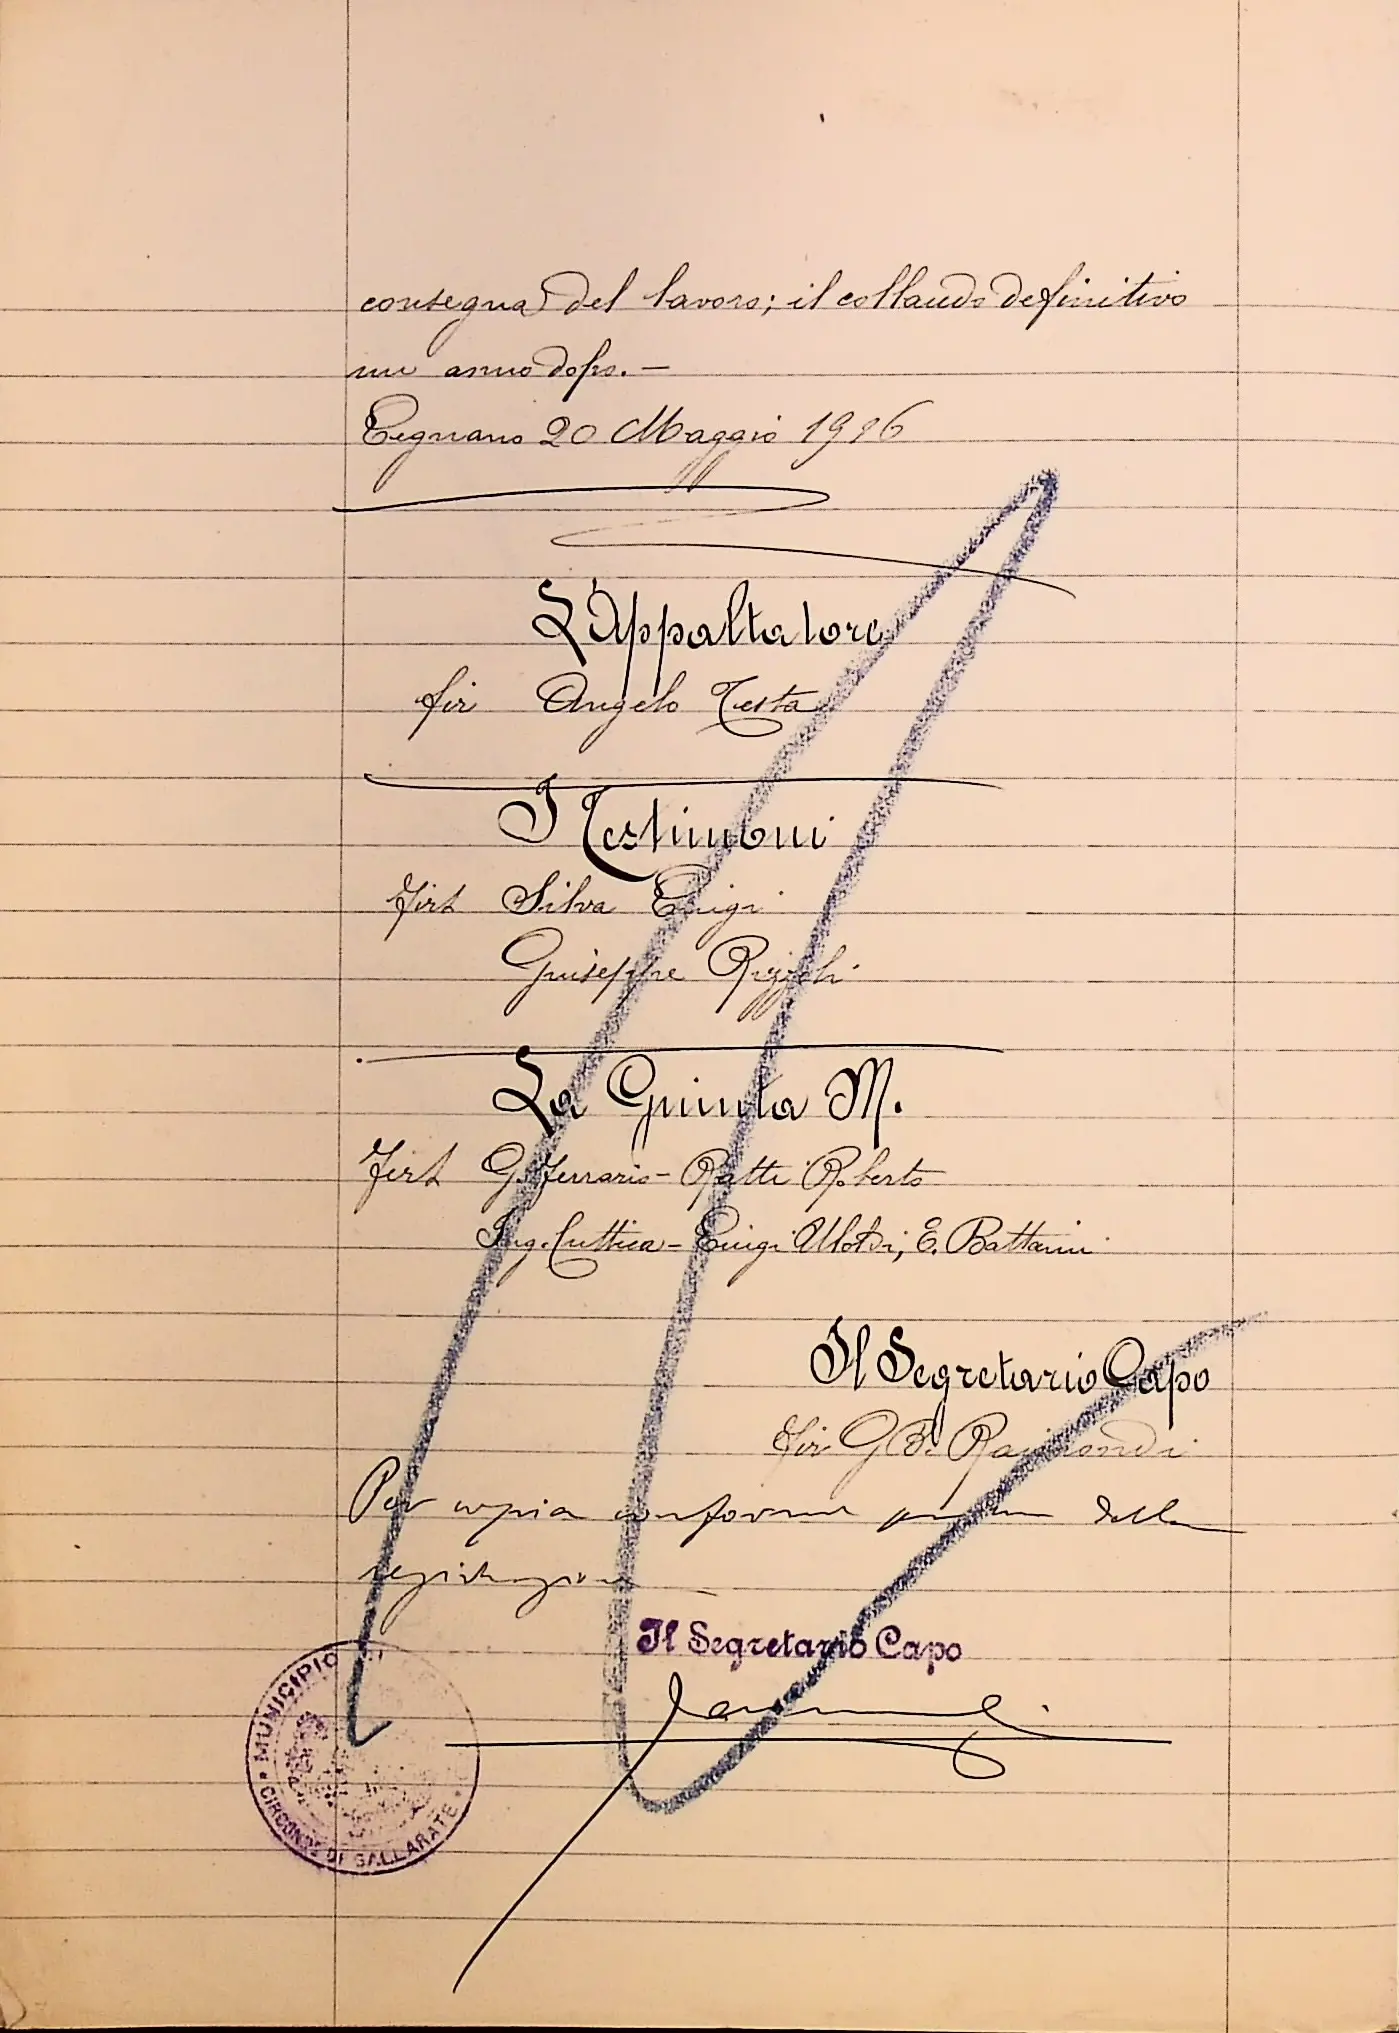 consegna del lavoro; il collaudo definitivo
un anno dopo. —
Legnano 20 Maggio 1916
L'Appaltatore
fir Angelo Testa
I Testimoni
Firt Silva Luigi
Giuseppe Rizzoli
La Giunta M.
Firt G. Ferrario - Ratti Roberto
Ing. Cuttica - Luigi E. Battarini
Il Segretario Capo
fir G.B. Raimondi
Per copia conforme prima della
registrazione
Il Segretario Capo
MUNICIPIO
CIRCOND. DI GALLARATE